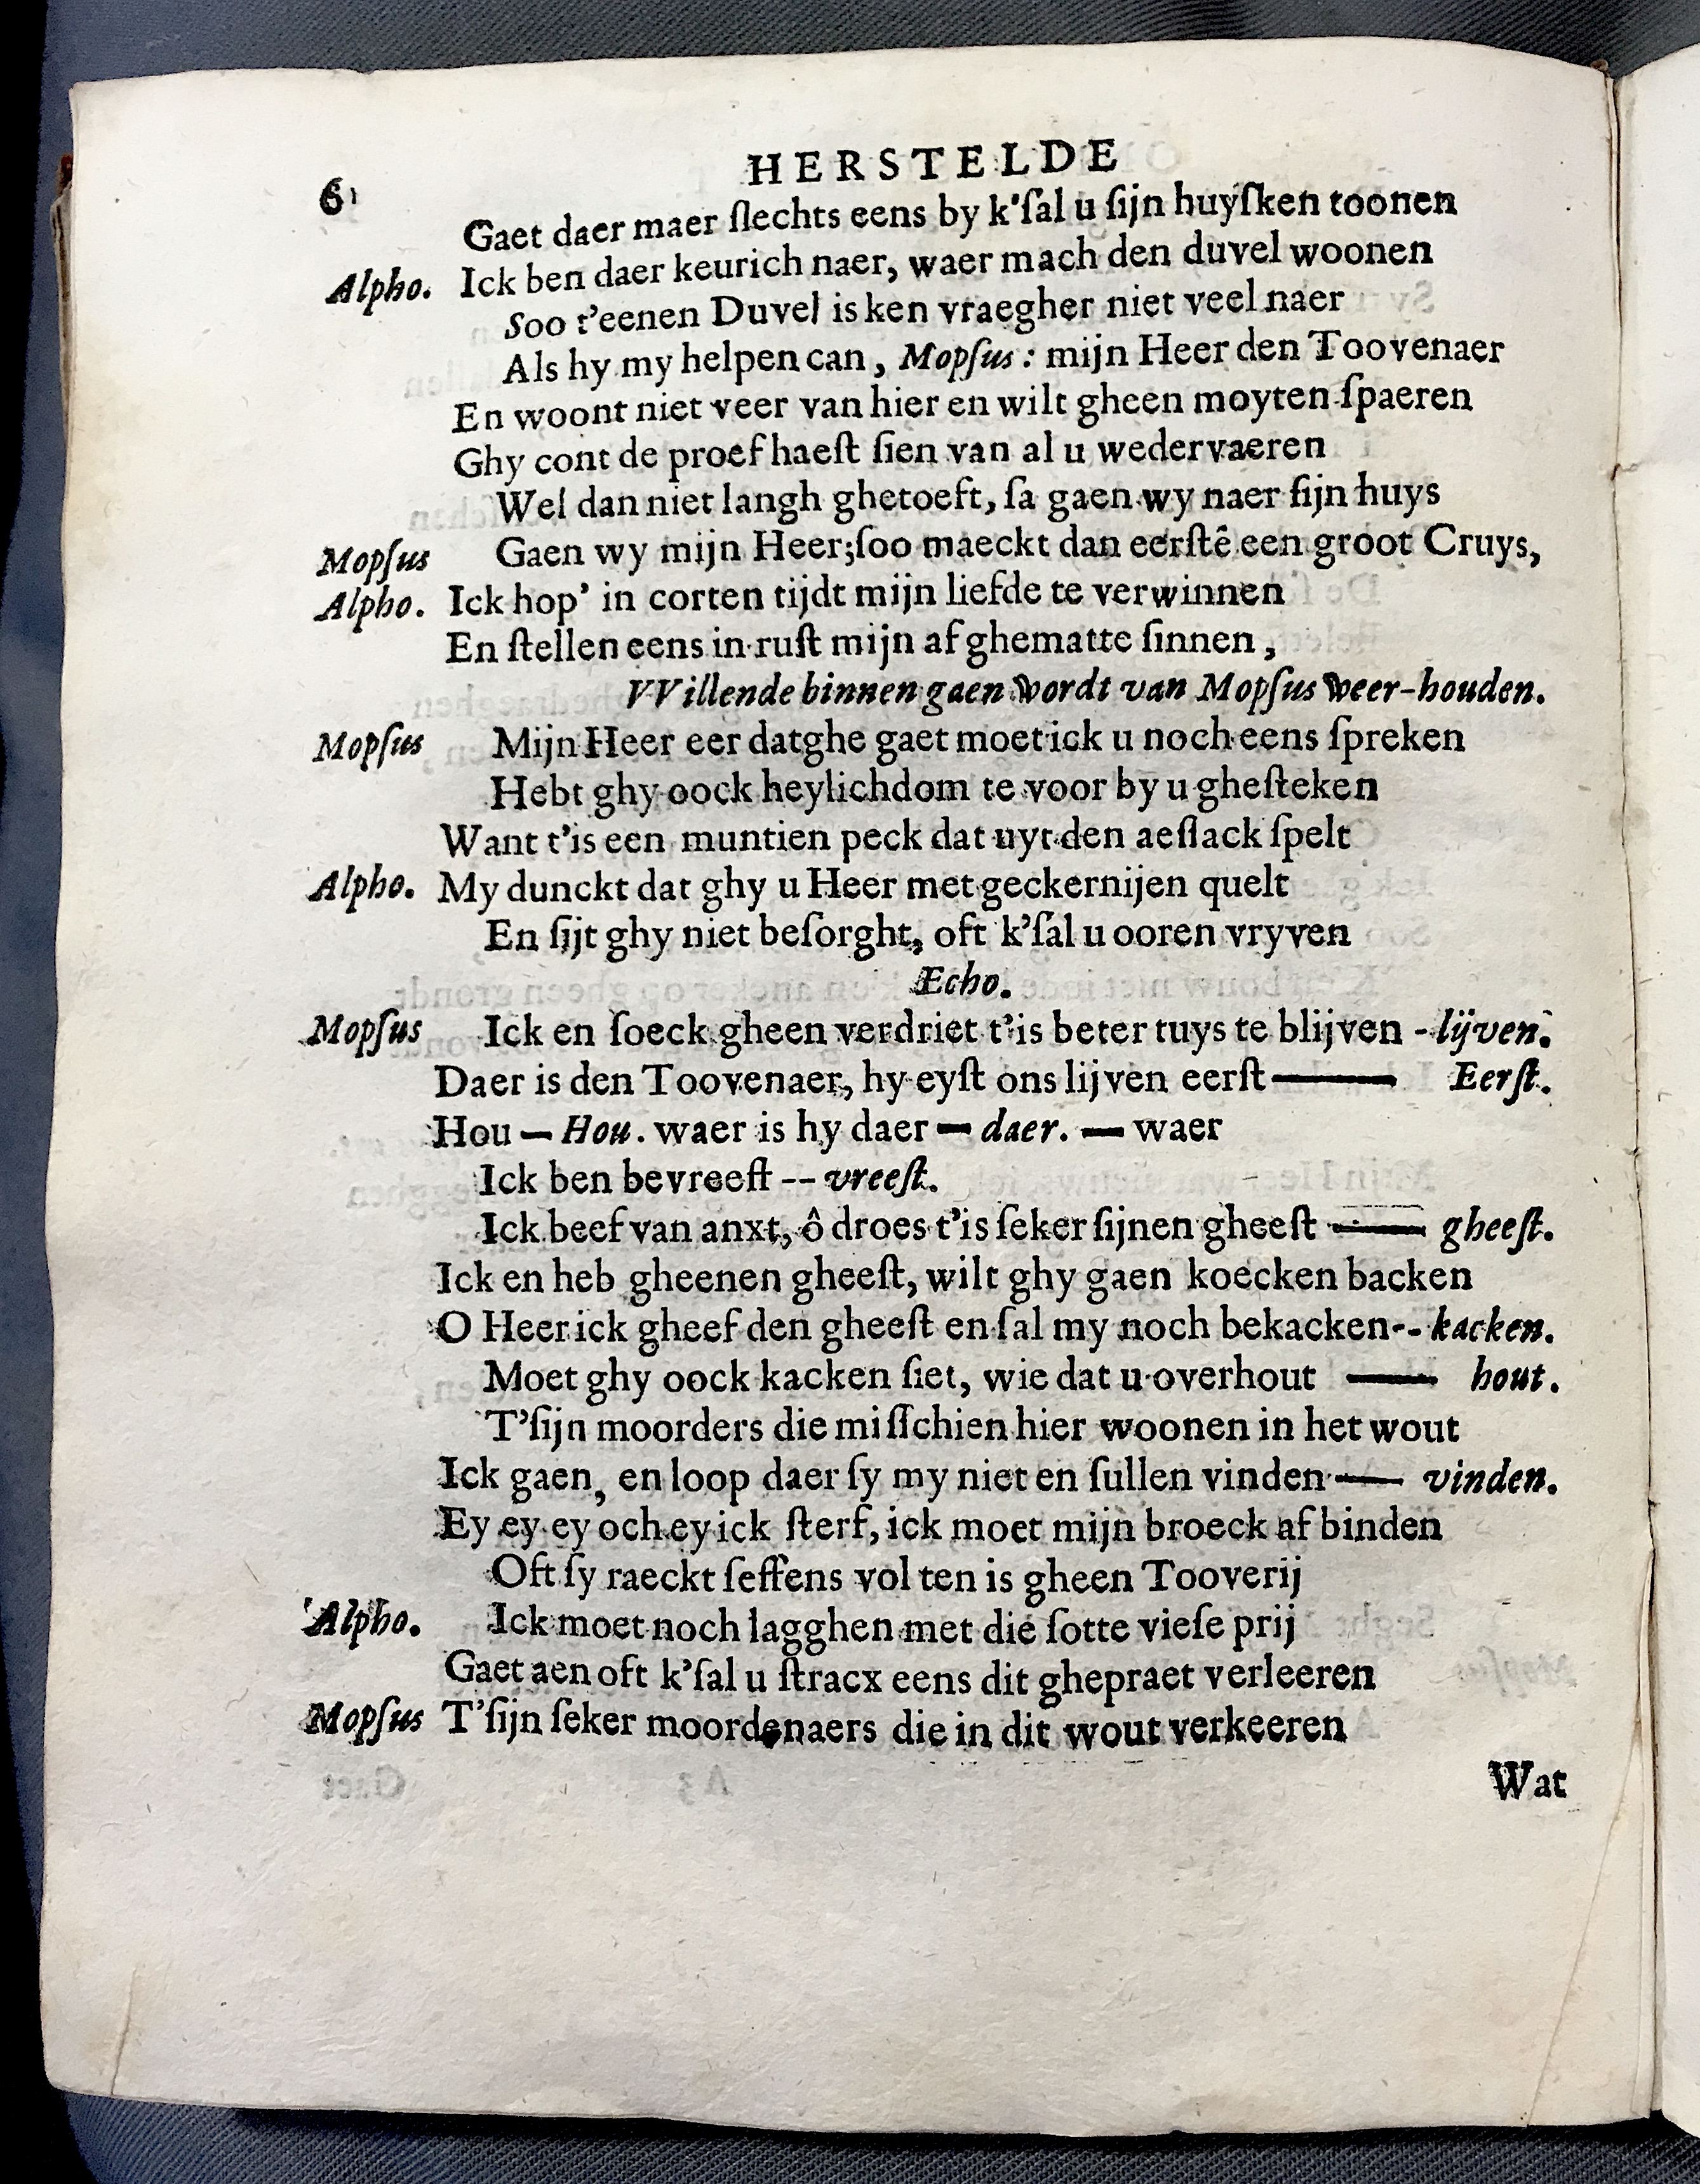 6
HERSTELDE
Gaet daer maer ſlechts eens by k'ſal u ſijn huyſken toonen
Alpho. Ick ben daer keurich naer, waer mach den duvel woonen
Soo t'eenen Duvel is ken vraegher niet veel naer
Als hy my helpen can, Mopſus: mijn Heer den Toovenaer
En woont niet veer van hier en wilt gheen moyten ſpaeren
Ghy cont de proef haeſt ſien van al u wedervaeren
Wel dan niet langh ghetoeft, ſa gaen wy naer ſijn huys
Mopſus Gaen wy mijn Heer;ſoo maeckt dan eerſtê een groot Cruys,
Alpho. Ick hop' in corten tijdt mijn liefde te verwinnen
En ſtellen eens in ruſt mijn af ghematte ſinnen,
VVillende binnen gaen wordt van Mopſus weer-houden.
Mopſus Mijn Heer eer datghe gaet moet ick u noch eens ſpreken
Hebt ghy oock heylichdom te voor by u gheſteken
Want t'is een muntien peck dat uyt den aeſlack ſpelt
Alpho. My dunckt dat ghy u Heer met geckernijen quelt
En ſijt ghy niet beſorght, oft k'ſal u ooren vryven
Echo.
Mopſus Ick en ſoeck gheen verdriet t'is beter tuys te blijven - lijven.
Daer is den Toovenaer, hy eyſt ons lijven eerſt — Eerſt.
Hou — Hou. waer is hy daer — daer. — waer
Ick ben bevreeſt -- vreeſt.
Ick beef van anxt, ô droes t'is ſeker ſijnen gheeſt — gheeſt.
Ick en heb gheenen gheeſt, wilt ghy gaen koecken backen
O Heer ick gheef den gheeſt en ſal my noch bekacken-- kacken.
Moet ghy oock kacken ſiet, wie dat u overhout — hout.
T'ſijn moorders die miſſchien hier woonen in het wout
Ick gaen, en loop daer ſy my niet en ſullen vinden — vinden.
Ey ey ey och ey ick ſterf, ick moet mijn broeck af binden
Oft ſy raeckt ſeffens vol ten is gheen Tooverij
Alpho. Ick moet noch lagghen met die ſotte vieſe prij
Gaet aen oft k'ſal u ſtracx eens dit ghepraet verleeren
Mopſus T'ſijn ſeker moordenaers die in dit wout verkeeren
Wat